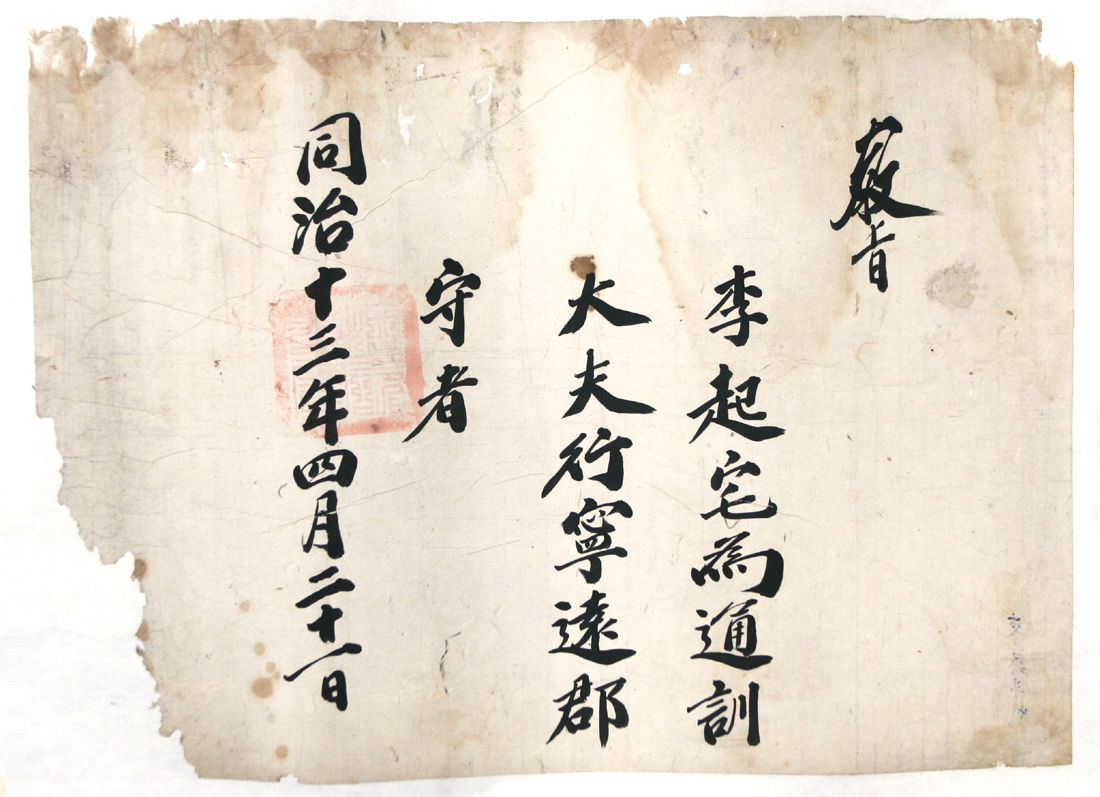 敎旨
李起宅為通訓
大夫行寧遠郡
守者
同治十三年四月二十一日